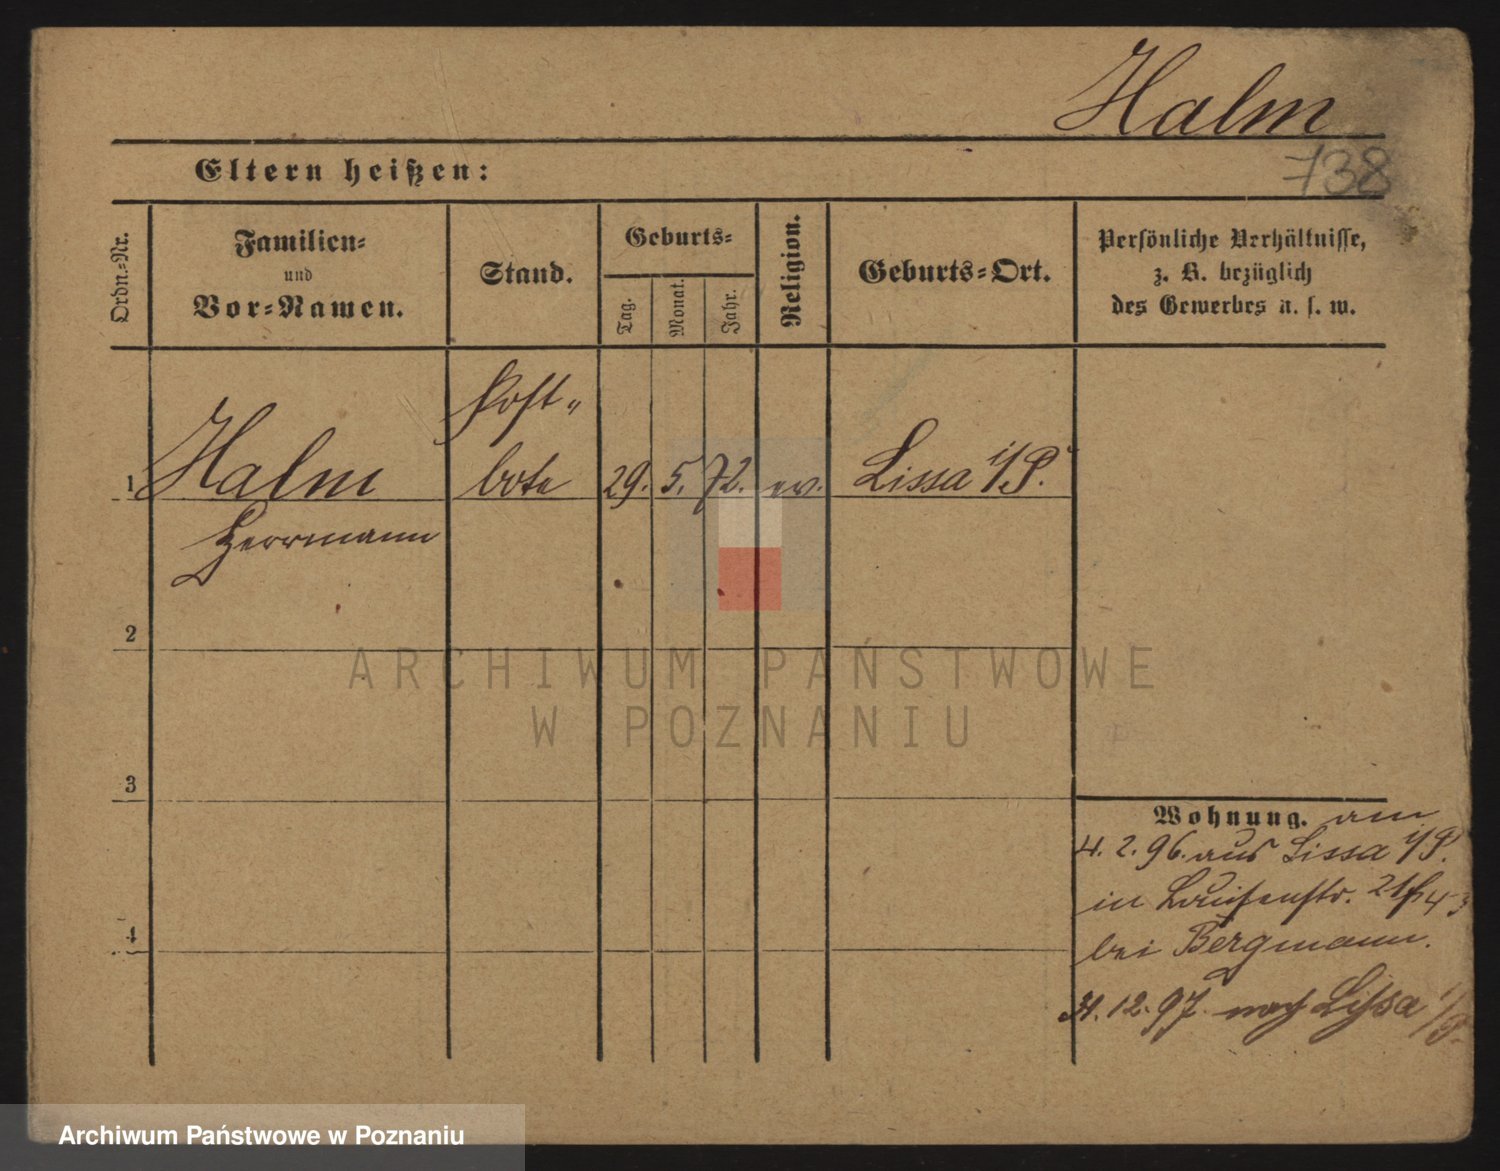 Halm
738
Eltern heißen:
Ordn.-Nr.
Familien-
und
Vor-Namen.
Stand.
Geburts-
Tag.
Monat.
Jahr.
Religion.
Geburts-Ort.
Persönliche Verhältnisse,
z. B. bezüglich
des Gewerbes u. s. w.
Post-
1 Halm bote 29. 5. 72. ev. Lissa i/P.
Herrmann
2
3
4
ARCHIWUM PAŃSTWOWE
W POZNANIU
Wohnung. am
4. 2. 96. aus Lissa i/P.
in Louisenstr.
bei Bergmann.
31. 12. 97. nach Lissa i/P.
Archiwum Państwowe w Poznaniu